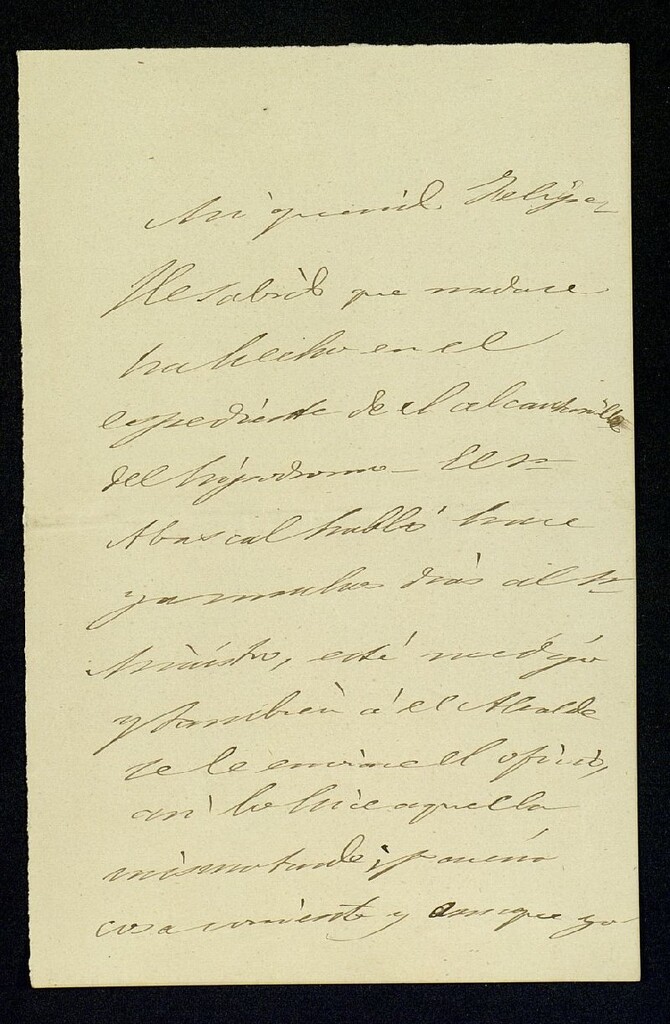 Mi querido Felipe:
He sabido que nada se
ha hecho en el
expediente de el alcantarilla
del hipodromo - El Sr
Abascal habló hace
ya muchos dias al Sr
Ministro, esté me dijo
y tambien á el Alcalde
se le enviase el oficio,
asi lo hice aquella
misma tarde, parecia
cosa corriente y aunque yo